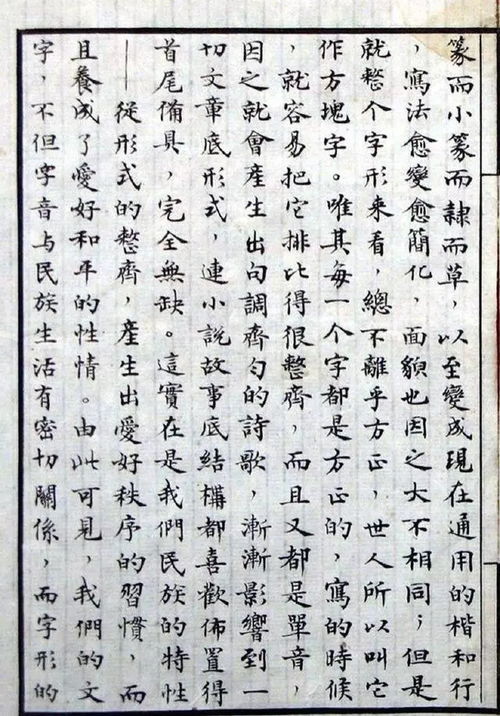 篆而小篆而隸而草，以至變成現在通用的楷和行
，寫法愈變愈簡化，面貌也因之大不相同；但是
就整个字形来看，總不離乎方正，世人所以叫它
作方塊字。唯其每一个字都是方正的，寫的時候
，就容易把它排比得很整齊，而且又都是單音，
因之就會產生出句調齊勻的詩歌，漸漸影響到一
切文章底形式，連小說故事底結構都喜歡佈置得
首尾備具，完全無缺。這實在是我們民族的特性
——從形式的整齊，產生出愛好秩序的習慣，而
且養成了愛好和平的性情。由此可見，我們的文
字，不但字音与民族生活有密切關係，而字形的